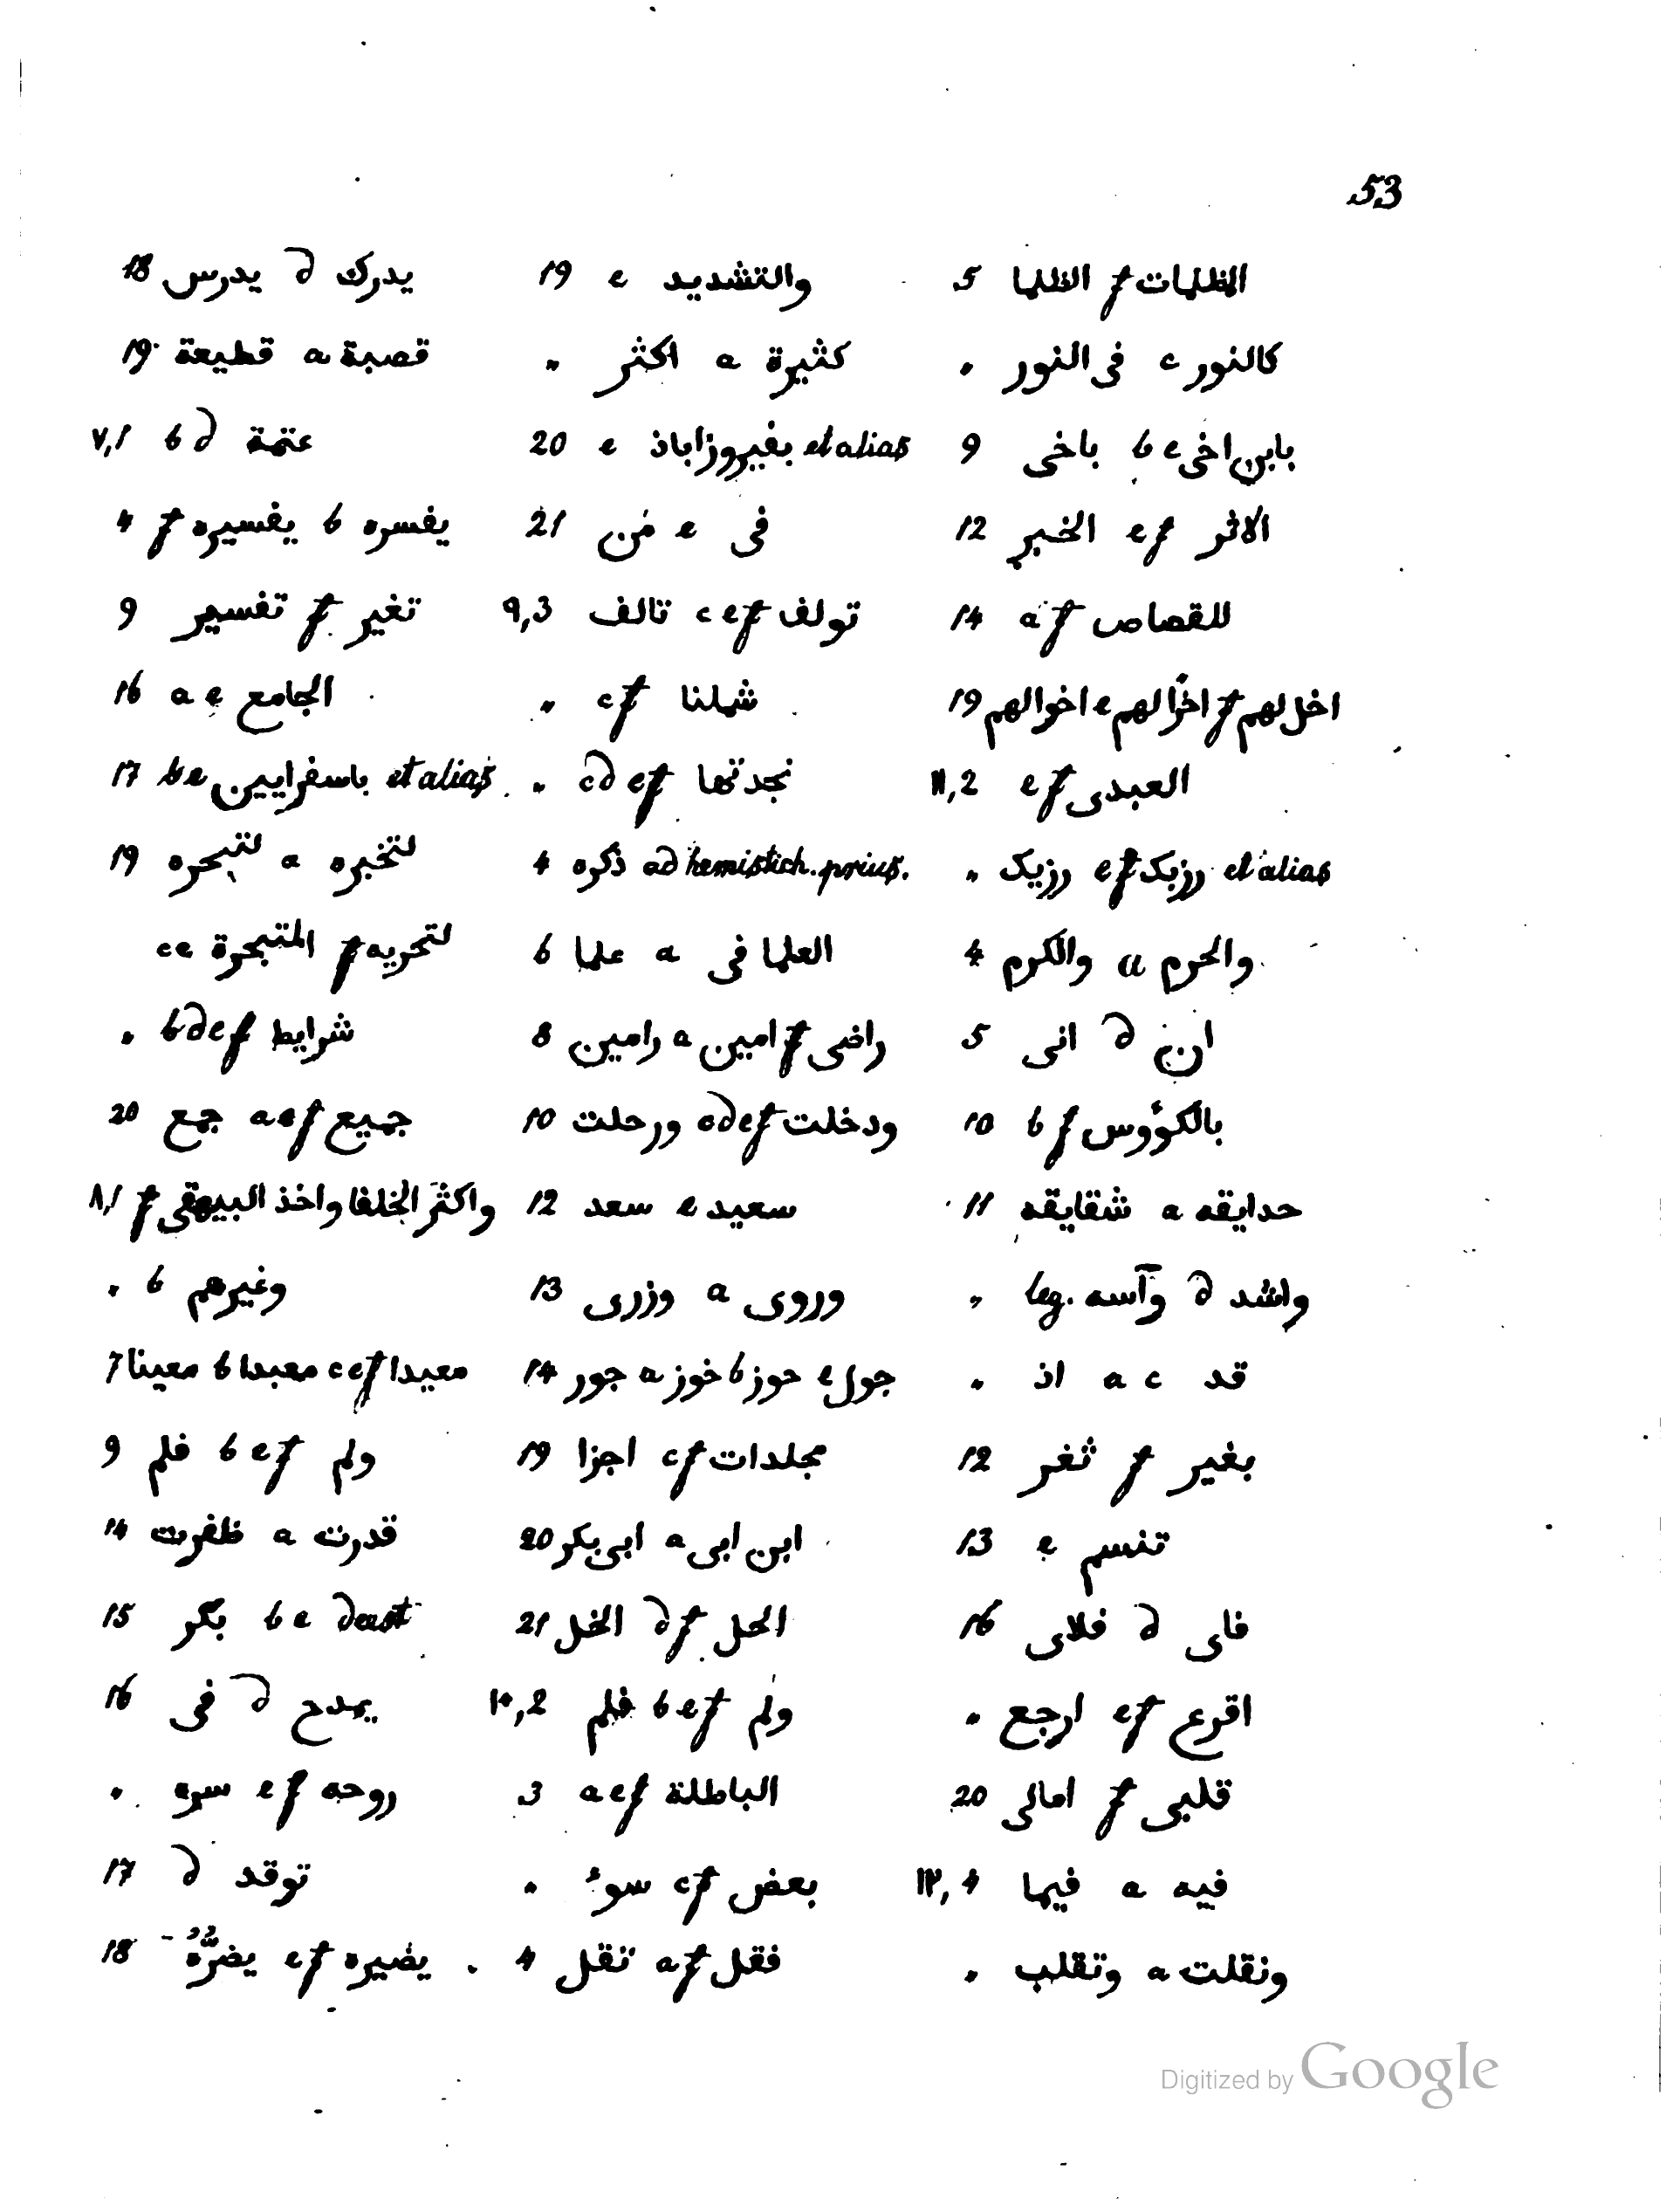 53
5 الظلمات f الظلما
„ كالنور c فى النور
9 بابن اخى b e باخى
12 الاثر e f الخبر
14 للقصاص a f
19 اخل لهم f اخرا لهم e اخوالهم
11,2 العبدى e f
„ رزيك e f رزبك et alias
4 والحرم a والكرم
5 ان d انى
10 بالكؤوس b f
11 حدايقه a شقايقه
„ واشد d وآسه leg.
„ قد a c اذ
12 بغير f ثغر
13 تنسم e
16 فاى d فلاى
„ اقرع e f ارجع
20 قلبى f امالى
13,4 فيه a فيما
„ ونقلت a وتقلب
19 والتشديد e
„ كثيرة a اكثر
20 بفيروزاباذ e et alias
21 فى e من
9,3 تولف c e f تالف
„ شملنا c f
„ نجدتها c d e f
4 ذكره ad hemistich. prius.
6 العلما فى a علما
8 راضى f امين a رامين
10 ودخلت c d e f ورحلت
12 سعيد e سعد
13 وروى a وزرى
14 جول e حوز b خوز a جور
19 مجلدات c f اجزا
20 ابن ابى a ابى بكر
21 الحل d f الخل
10,2 ولم b e f فلم
3 الباطلة a e f
„ بعض c f سوء
4 فقل a f تقل
18 يدرك d يدرس
19 قصبة a قطيعة
7,1 عتمة b d
4 يفسره b يفسيره f
9 تغير f تفسير
16 الجامع a e
17 باسفرايين b e et alias
19 لتخبره a لتبحره
لتحريه f المتبحرة c e
„ شرايط b d e f
20 جميع a e f جمع
8,1 واكثر الخلفا واخذ البيهقى f
„ وغيرهم b
7 معيدا c e f معبدا b معينا
9 ولم b e f فلم
14 قدرت a ظفرت
15 بكر b e deest
16 يمدح d فى
„ روحه e f سره
17 توقد d
18 يضيره e f يضره
Digitized by Google